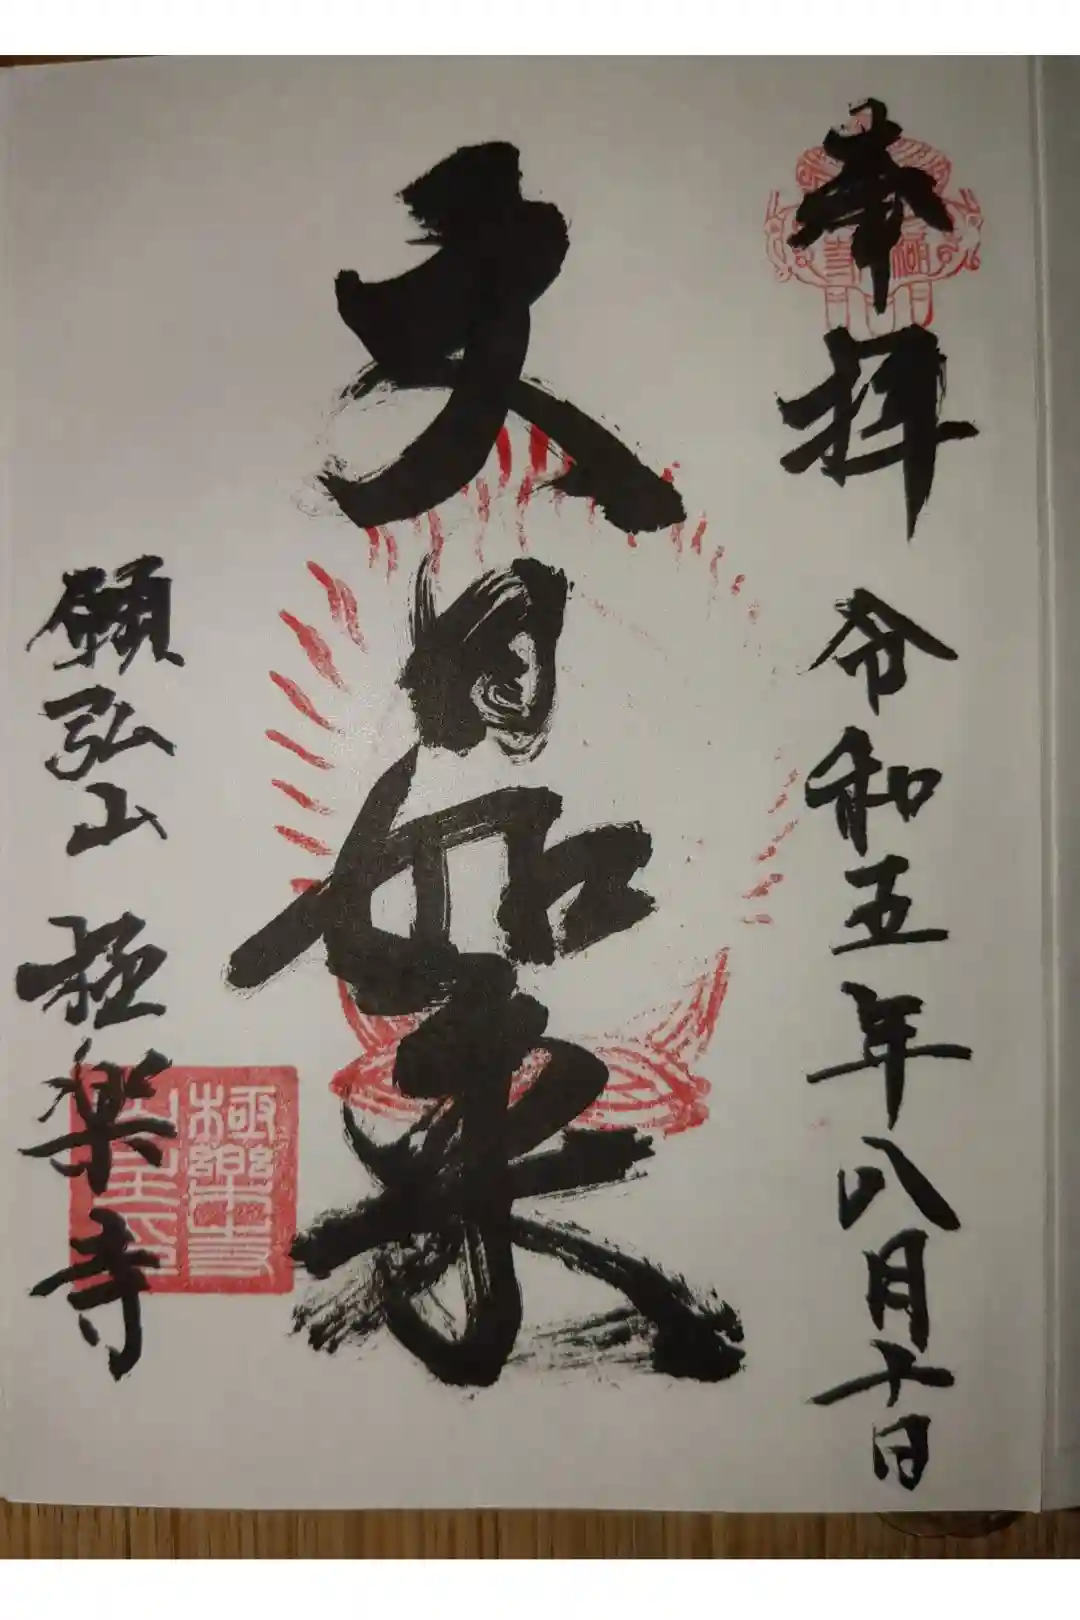 奉拝 令和五年八月十日
大日如来
願弘山 極楽寺
極楽寺